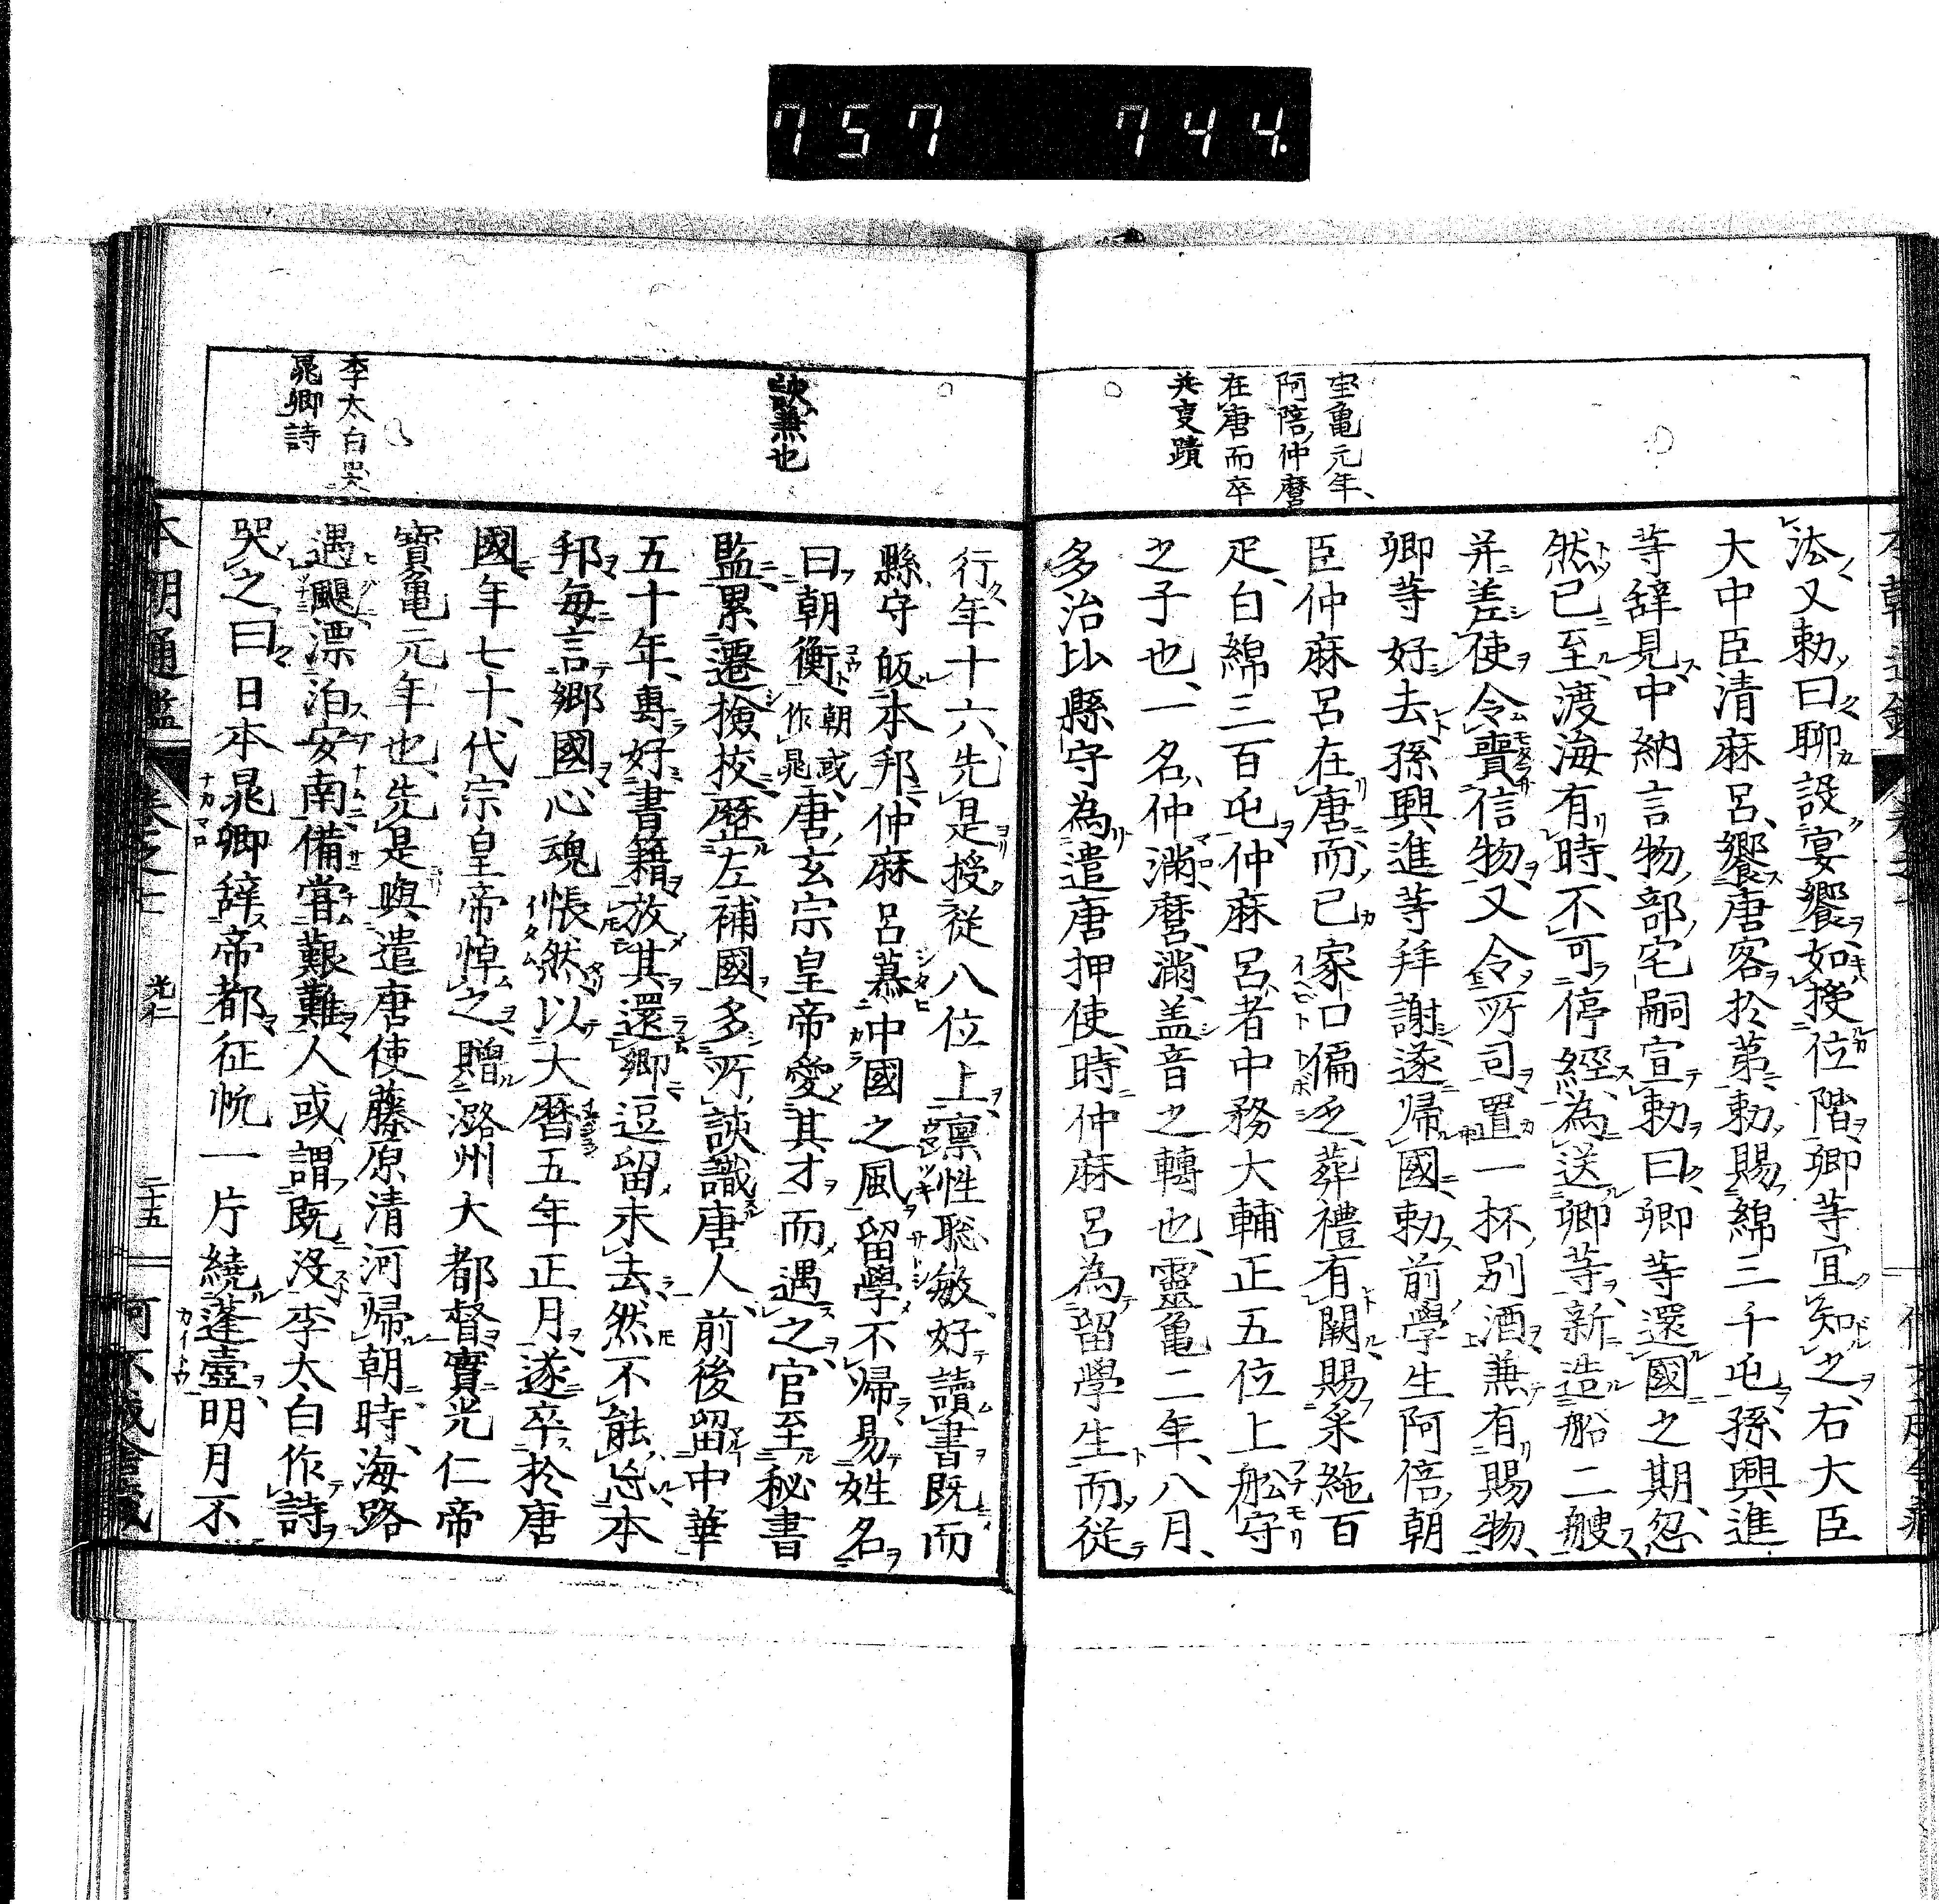 757 744.
宝亀元年、
阿陪仲麿
在唐而卒
法又勅曰聊設宴饗如授位階卿等宜知之右大臣
大中臣清麻呂饗唐客於第勅賜綿三千屯孫興進
等辞見中納言物部宅嗣宣勅曰卿等還國之期忽
然已至渡海有時不可停經為送卿等新造船二艘
并差使令賷信物又令所司置一杯別酒兼有賜物
卿等好去孫興進等拜謝遂帰國勅前學生阿倍朝
臣仲麻呂在唐而已家口偏乏葬禮有闕賜釆絁百
疋白綿三百屯仲麻呂者中務大輔正五位上舩守
之子也一名仲滿麿滿盖音之轉也靈亀二年八月
多治比縣守為遣唐押使時仲麻呂為留學生而従
談兼也
李太白哭
晁卿詩
行年十六先是授従八位上禀性聡敏好讀書既而
縣守皈本邦仲麻呂慕中國之風留學不帰易姓名
曰朝衡朝或作晁唐玄宗皇帝愛其才而遇之官至秘書
監累遷撿挍歴左補國多所談識唐人前後留中華
五十年專好書籍放其還卿逗留未去然不能忘本
邦每言郷國心魂悵然以大暦五年正月遂卒於唐
國年七十代宗皇帝悼之贈潞州大都督實光仁帝
寶亀元年也先是與遣唐使藤原清河帰朝時海路
遇颶漂泊安南備嘗艱難人或謂既沒李太白作詩
哭之曰日本晁卿辞帝都征帆一片繞蓬壺明月不
本朝通鑑 卷之 光仁 二十五